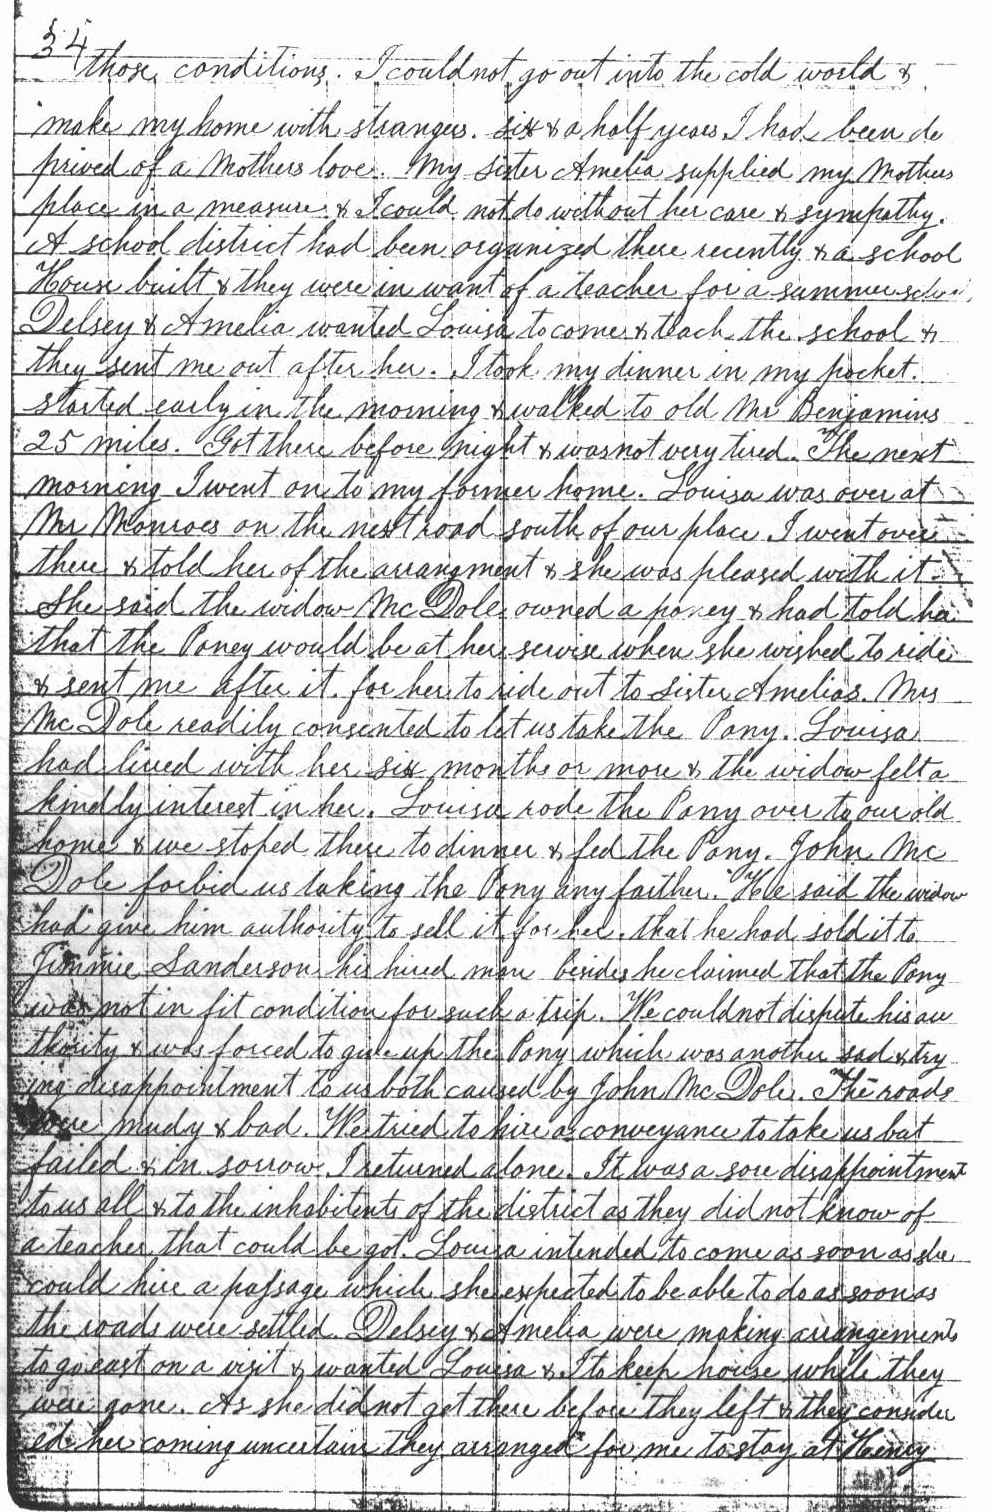 34
those conditions. I could not go out into the cold world &
make my home with strangers. Six & a half years I had been de
prived of a Mothers love. My Sister Amelia supplied my Mothers
place in a measure & I could not do without her care & sympathy.
A school district had been organized there recently & a school
House built & they were in want of a teacher for a summer school,
Delsey & Amelia wanted Louisa to come & teach the school &
they sent me out after her. I took my dinner in my pocket.
started early in the morning & walked to old Mr Benjamins
25 miles. Got there before night & was not very tired. The next
morning I went on to my former home. Louisa was over at
Mr Monroes on the next road south of our place I went over
there & told her of the arrangment & she was pleased with it.
She said the widow Mc Dole owned a poney & had told her
that the Poney would be at her servise when she wished to ride
& sent me after it for her to ride out to Sister Amelias. Mrs
Mc Dole readily consented to let us take the Pony. Louisa
had lived with her six months or more & the widow felt a
kindly interest in her. Louisa rode the Pony over to our old
home & we stoped there to dinner & fed the Pony. John Mc
Dole forbid us taking the Pony any farther. He said the widow
had give him authority to sell it for her. that he had sold it to
Jimmie Sanderson his hired man besides he claimed that the Pony
was not in fit condition for such a trip. We could not dispute his au
thority & was forced to give up the Pony which was another sad & try
ing disappointment to us both caused by John Mc Dole. The roads
were mudy & bad. We tried to hire a conveyance to take us but
failed & in sorrow I returned alone. It was a sore disappointment
to us all & to the inhabitents of the district as they did not know of
a teacher that could be got. Louisa intended to come as soon as she
could hire a passage which she expected to be able to do as soon as
the roads were settled. Delsey & Amelia were making arrangements
to go east on a visit & wanted Louisa & I to keep house while they
were gone. As she did not get there before they left & they consider
ed her coming uncertain they arranged for me to stay at Henry